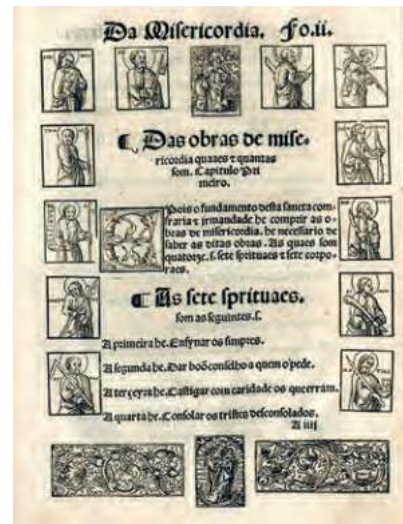 Da Misericordia. Fo.ii.
¶ Das obras de mise-
ricordia quaaes ⁊ quantas
som. Capitulo Pri
meiro.
Pois o fundamento desta sancta com-
fraria ⁊ irmandade he comprir as o-
bras de misericordia. he necessario de
saber as ditas obras. As quaes som
quatorze. s. sete sprituaes ⁊ sete corpo-
raes.
¶ As sete sprituaes.
som as seguintes. s.
A primeira he. Ensynar os simpres.
A segunda he. Dar boõ conselho a quem o pede.
A terçeyra he. Castigar com caridade os que erram.
A quarta he. Consolar os tristes desconsolados.
A iiij